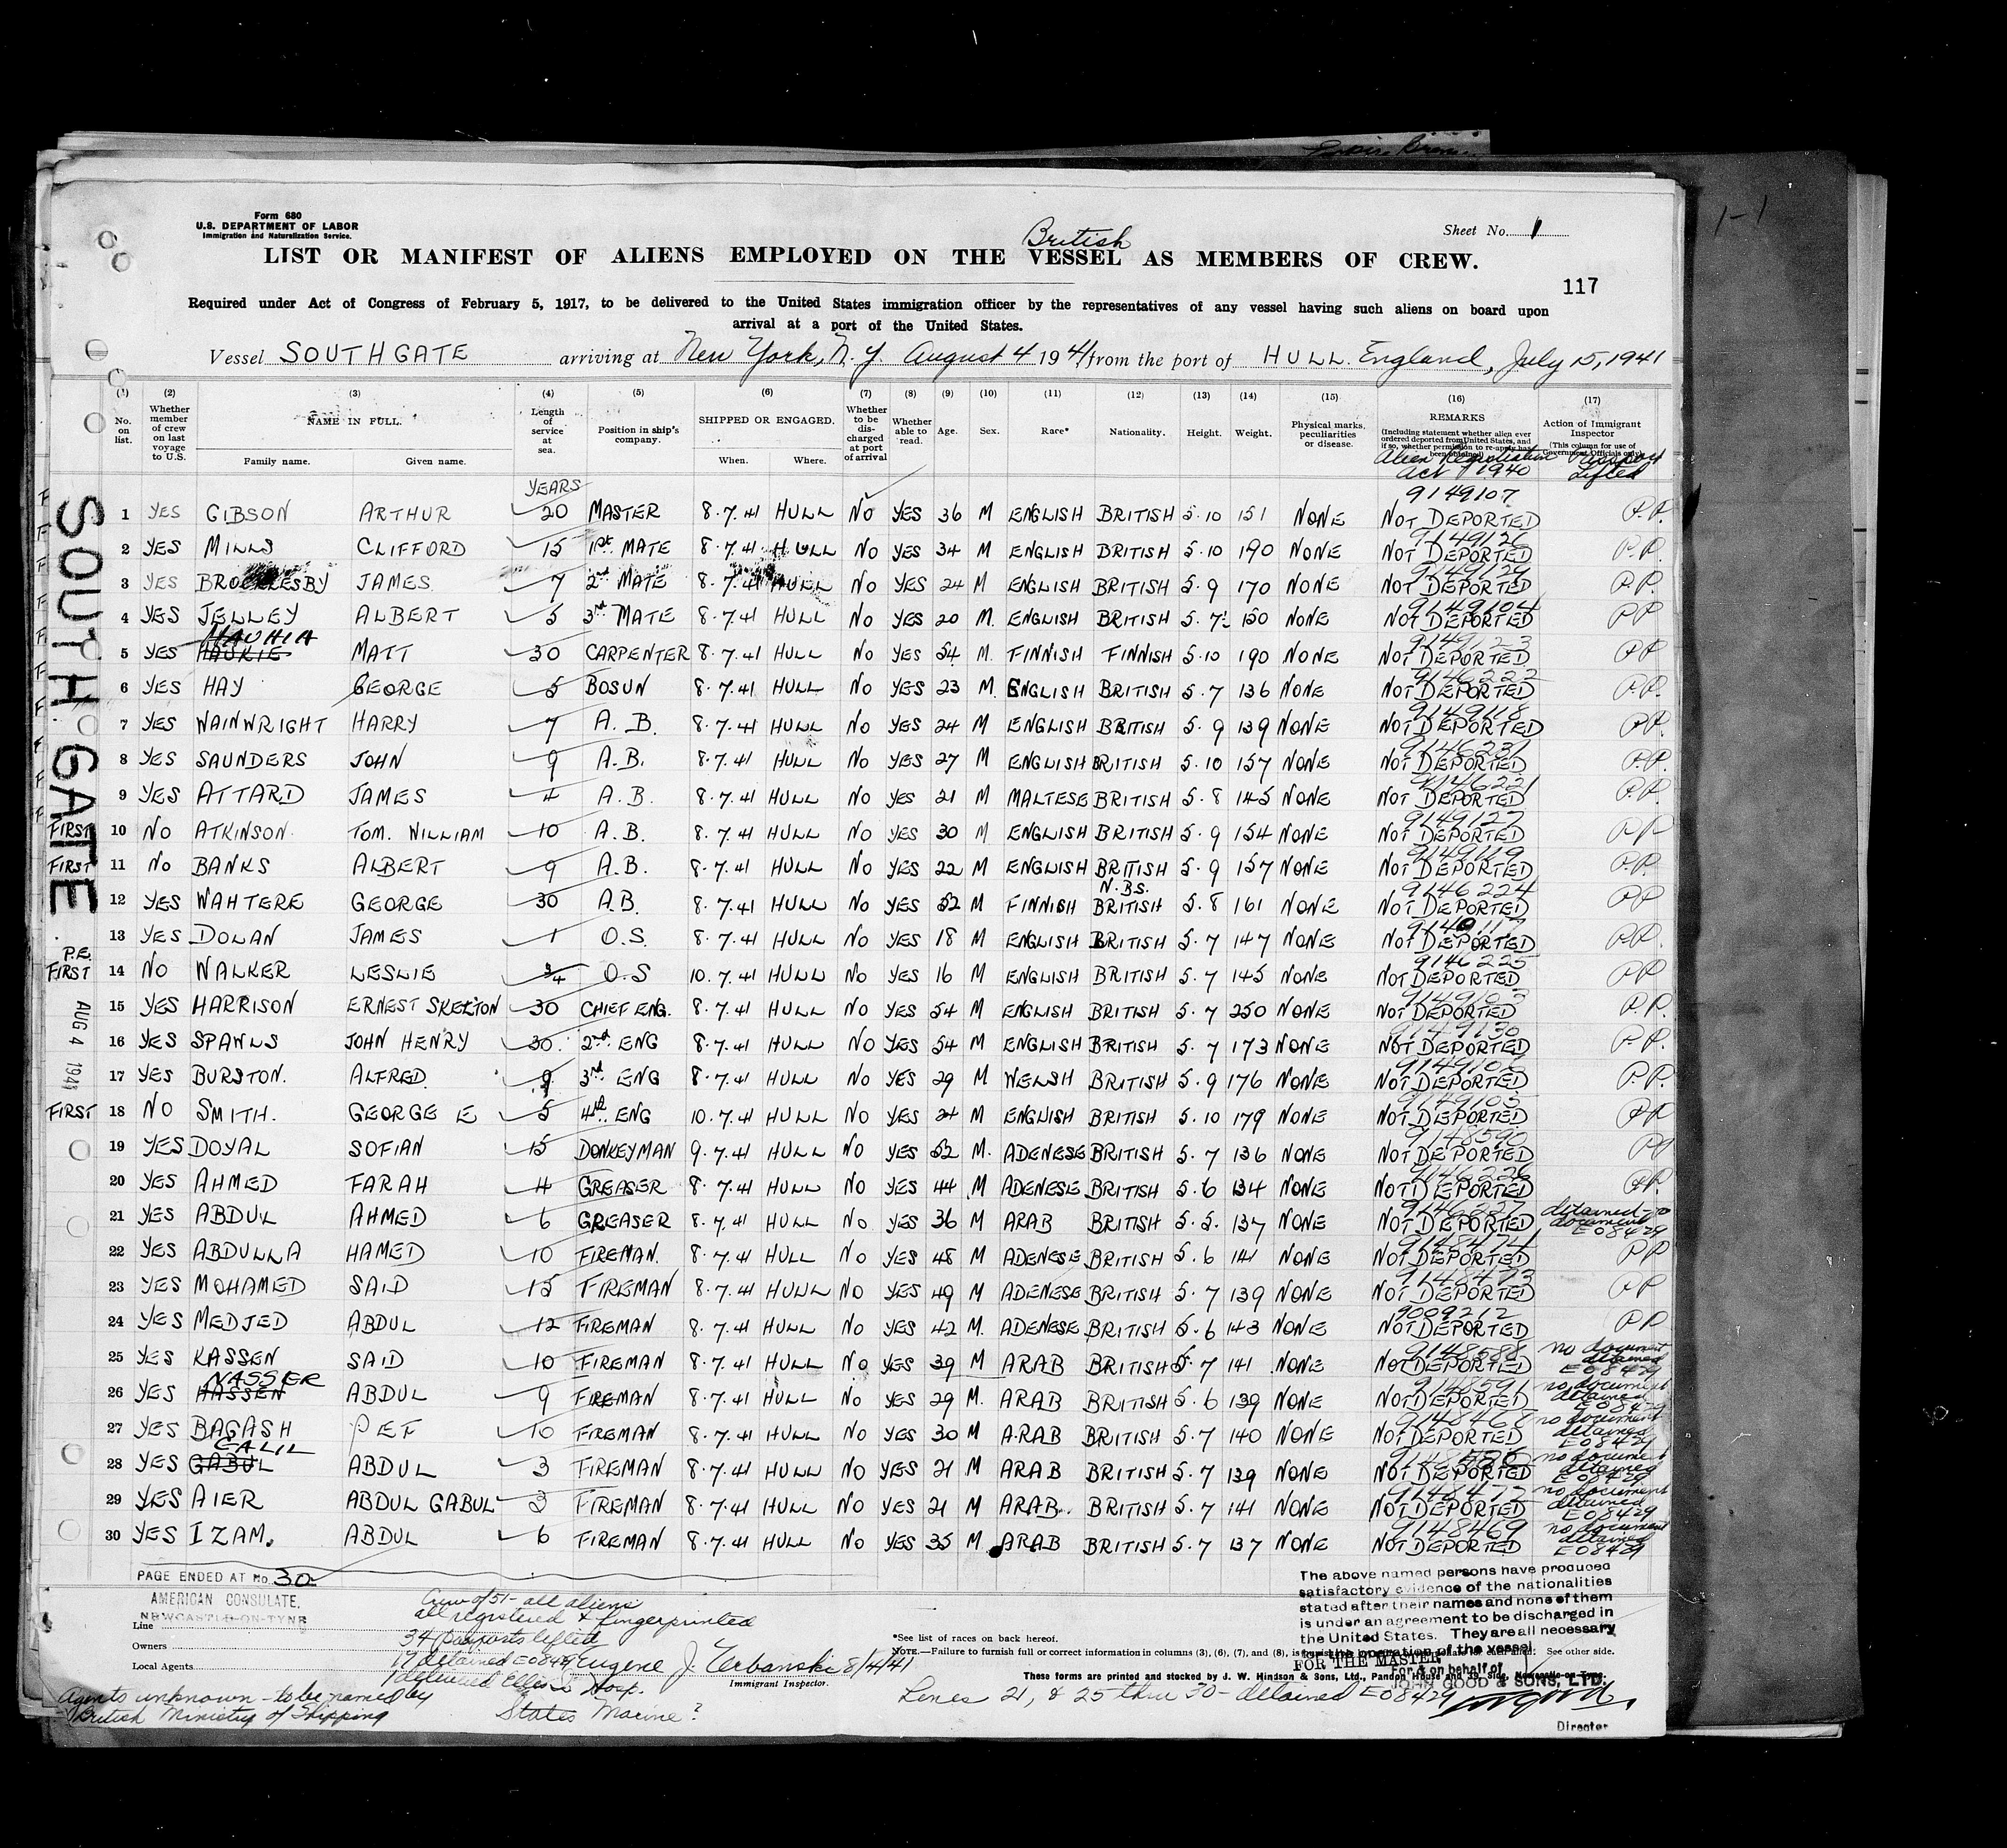 Form 680
U.S. DEPARTMENT OF LABOR
Immigration and Naturalization Service.
Sheet No. 1
British
LIST OR MANIFEST OF ALIENS EMPLOYED ON THE VESSEL AS MEMBERS OF CREW.
117
Required under Act of Congress of February 5, 1917, to be delivered to the United States immigration officer by the representatives of any vessel having such aliens on board upon
arrival at a port of the United States.
Vessel SOUTHGATE arriving at New York, N. Y. August 4 1941 from the port of HULL. England, July 15, 1941
(1) (2) (3) (4) (5) (6) (7) (8) (9) (10) (11) (12) (13) (14) (15) (16) (17)
No. on list. Whether member of crew on last voyage to U.S. NAME IN FULL. Family name. Given name. Length of service at sea. Position in ship's company. SHIPPED OR ENGAGED. When. Where. Whether to be discharged at port of arrival Whether able to read. Age. Sex. Race* Nationality. Height. Weight. Physical marks, peculiarities or disease. REMARKS (Including statement whether alien ever ordered deported from United States, and if so, whether permission to re-apply has been obtained) Action of Immigrant Inspector (This column for use of Government Officials only)
Alien Registration Act 1940 Passport Lifted
YEARS
SOUTHGATE
9149107
1 YES GIBSON ARTHUR 20 MASTER 8.7.41 HULL NO YES 36 M ENGLISH BRITISH 5.10 151 NONE NOT DEPORTED P.P.
9149126
2 YES MILLS CLIFFORD 15 1st MATE 8.7.41 HULL NO YES 34 M ENGLISH BRITISH 5.10 190 NONE NOT DEPORTED P.P.
3 YES BROCKLESBY JAMES 7 2nd MATE 8.7.41 HULL NO YES 24 M ENGLISH BRITISH 5.9 170 NONE NOT DEPORTED P.P.
9149104
4 YES JELLEY ALBERT 5 3rd MATE 8.7.41 HULL NO YES 20 M. ENGLISH BRITISH 5.7 150 NONE NOT DEPORTED PP
9149123
5 YES MATT 30 CARPENTER 8.7.41 HULL NO YES 54 M. FINNISH FINNISH 5.10 190 NONE NOT DEPORTED PP
9146222
6 YES HAY GEORGE 5 BOSUN 8.7.41 HULL NO YES 23 M. ENGLISH BRITISH 5.7 136 NONE NOT DEPORTED P.P.
9149118
7 YES WAINWRIGHT HARRY 7 A.B. 8.7.41 HULL NO YES 24 M ENGLISH BRITISH 5.9 139 NONE NOT DEPORTED PP.
9146231
8 YES SAUNDERS JOHN 9 A.B. 8.7.41 HULL NO YES 27 M ENGLISH BRITISH 5.10 157 NONE NOT DEPORTED P.P.
9146221
9 YES ATTARD JAMES 4 A.B. 8.7.41 HULL NO YES 21 M MALTESE BRITISH 5.8 145 NONE NOT DEPORTED P.P.
9149127
FIRST 10 NO ATKINSON TOM. WILLIAM 10 A.B. 8.7.41 HULL NO YES 30 M ENGLISH BRITISH 5.9 154 NONE NOT DEPORTED PP
9149119
FIRST 11 NO BANKS ALBERT 9 A.B. 8.7.41 HULL NO YES 22 M ENGLISH BRITISH 5.9 157 NONE NOT DEPORTED P.P.
N.B.S. 9146224
12 YES WAHTERE GEORGE 30 A.B. 8.7.41 HULL NO YES 52 M FINNISH BRITISH 5.8 161 NONE NOT DEPORTED PP
13 YES DOLAN JAMES 1 O.S. 8.7.41 HULL NO YES 18 M ENGLISH BRITISH 5.7 147 NONE NOT DEPORTED PP.
9146225
P.E. FIRST 14 NO WALKER LESLIE 3/4 O.S 10.7.41 HULL NO YES 16 M ENGLISH BRITISH 5.7 145 NONE NOT DEPORTED PP
AUG 4 1941
15 YES HARRISON ERNEST SKELTON 30 CHIEF ENG. 8.7.41 HULL NO YES 54 M ENGLISH BRITISH 5.7 250 NONE NOT DEPORTED P.P.
9149130
16 YES SPAWLS JOHN HENRY 30 2nd ENG 8.7.41 HULL NO YES 54 M ENGLISH BRITISH 5.7 173 NONE NOT DEPORTED P.P.
17 YES BURSTON. ALFRED. 9 3rd ENG 8.7.41 HULL NO YES 29 M WELSH BRITISH 5.9 176 NONE NOT DEPORTED P.P.
FIRST 18 NO SMITH. GEORGE E 5 4th ENG 10.7.41 HULL NO YES 24 M ENGLISH BRITISH 5.10 179 NONE NOT DEPORTED PP
9148590
19 YES DOYAL SOFIAN 15 DONKEYMAN 9.7.41 HULL NO YES 52 M. ADENESE BRITISH 5.7 136 NONE NOT DEPORTED PP
9146226
20 YES AHMED FARAH 4 GREASER 8.7.41 HULL NO YES 44 M ADENESE BRITISH 5.6 134 NONE NOT DEPORTED PP.
9146227
21 YES ABDUL AHMED 6 GREASER 8.7.41 HULL NO YES 36 M ARAB BRITISH 5.5. 137 NONE NOT DEPORTED detained-no document E08429
9148474
22 YES ABDULLA HAMED 10 FIREMAN. 8.7.41 HULL NO YES 48 M ADENESE BRITISH 5.6 141 NONE NOT DEPORTED PP
9148473
23 YES MOHAMED SAID 15 FIREMAN 8.7.41 HULL NO YES 49 M ADENESE BRITISH 5.7 139 NONE NOT DEPORTED PP
9009212
24 YES MEDJED ABDUL 12 FIREMAN 8.7.41 HULL NO YES 42 M. ADENESE BRITISH 5.6 143 NONE NOT DEPORTED PP
9148588
25 YES KASSEN SAID 10 FIREMAN 8.7.41 HULL NO YES 39 M ARAB BRITISH 5.7 141 NONE NOT DEPORTED no document detained E08429
NASSER 9148591
26 YES HASSEN ABDUL 9 FIREMAN 8.7.41 HULL NO YES 29 M. ARAB BRITISH 5.6 139 NONE NOT DEPORTED no document detained E08429
9148468
27 YES BAGASH PET 10 FIREMAN 8.7.41 HULL NO YES 30 M ARAB BRITISH 5.7 140 NONE NOT DEPORTED no document detained E08429
28 YES GABUL ABDUL 3 FIREMAN 8.7.41 HULL NO YES 21 M ARAB BRITISH 5.7 139 NONE NOT DEPORTED no document detained E08429
9148472
29 YES AIER ABDUL GABUL 3 FIREMAN 8.7.41 HULL NO YES 21 M ARAB. BRITISH 5.7 141 NONE NOT DEPORTED no document detained E08429
9148469
30 YES IZAM. ABDUL 6 FIREMAN 8.7.41 HULL NO YES 35 M ARAB BRITISH 5.7 137 NONE NOT DEPORTED no document detained E08429
PAGE ENDED AT No. 30
AMERICAN CONSULATE,
NEWCASTLE-ON-TYNE
Crew of 51 - all aliens
all registered & fingerprinted
34 passports lifted
17 detained E08429
Line
Owners
Local Agents
Eugene J. Urbanski 8/4/41
Immigrant Inspector.
Agents unknown - to be named by
British Ministry of Shipping
States Marine?
The above named persons have produced
satisfactory evidence of the nationalities
stated after their names and none of them
is under an agreement to be discharged in
the United States. They are all necessary
operation of the vessel.
FOR THE MASTER
For & on behalf of
JOHN GOOD & SONS, LTD.
Director
*See list of races on back hereof.
NOTE.—Failure to furnish full or correct information in columns (3), (6), (7), and (8), is See other side.
These forms are printed and stocked by J. W. Hindson & Sons, Ltd., Pandon House and
Lines 21, & 25 thru 30 - detained E08429